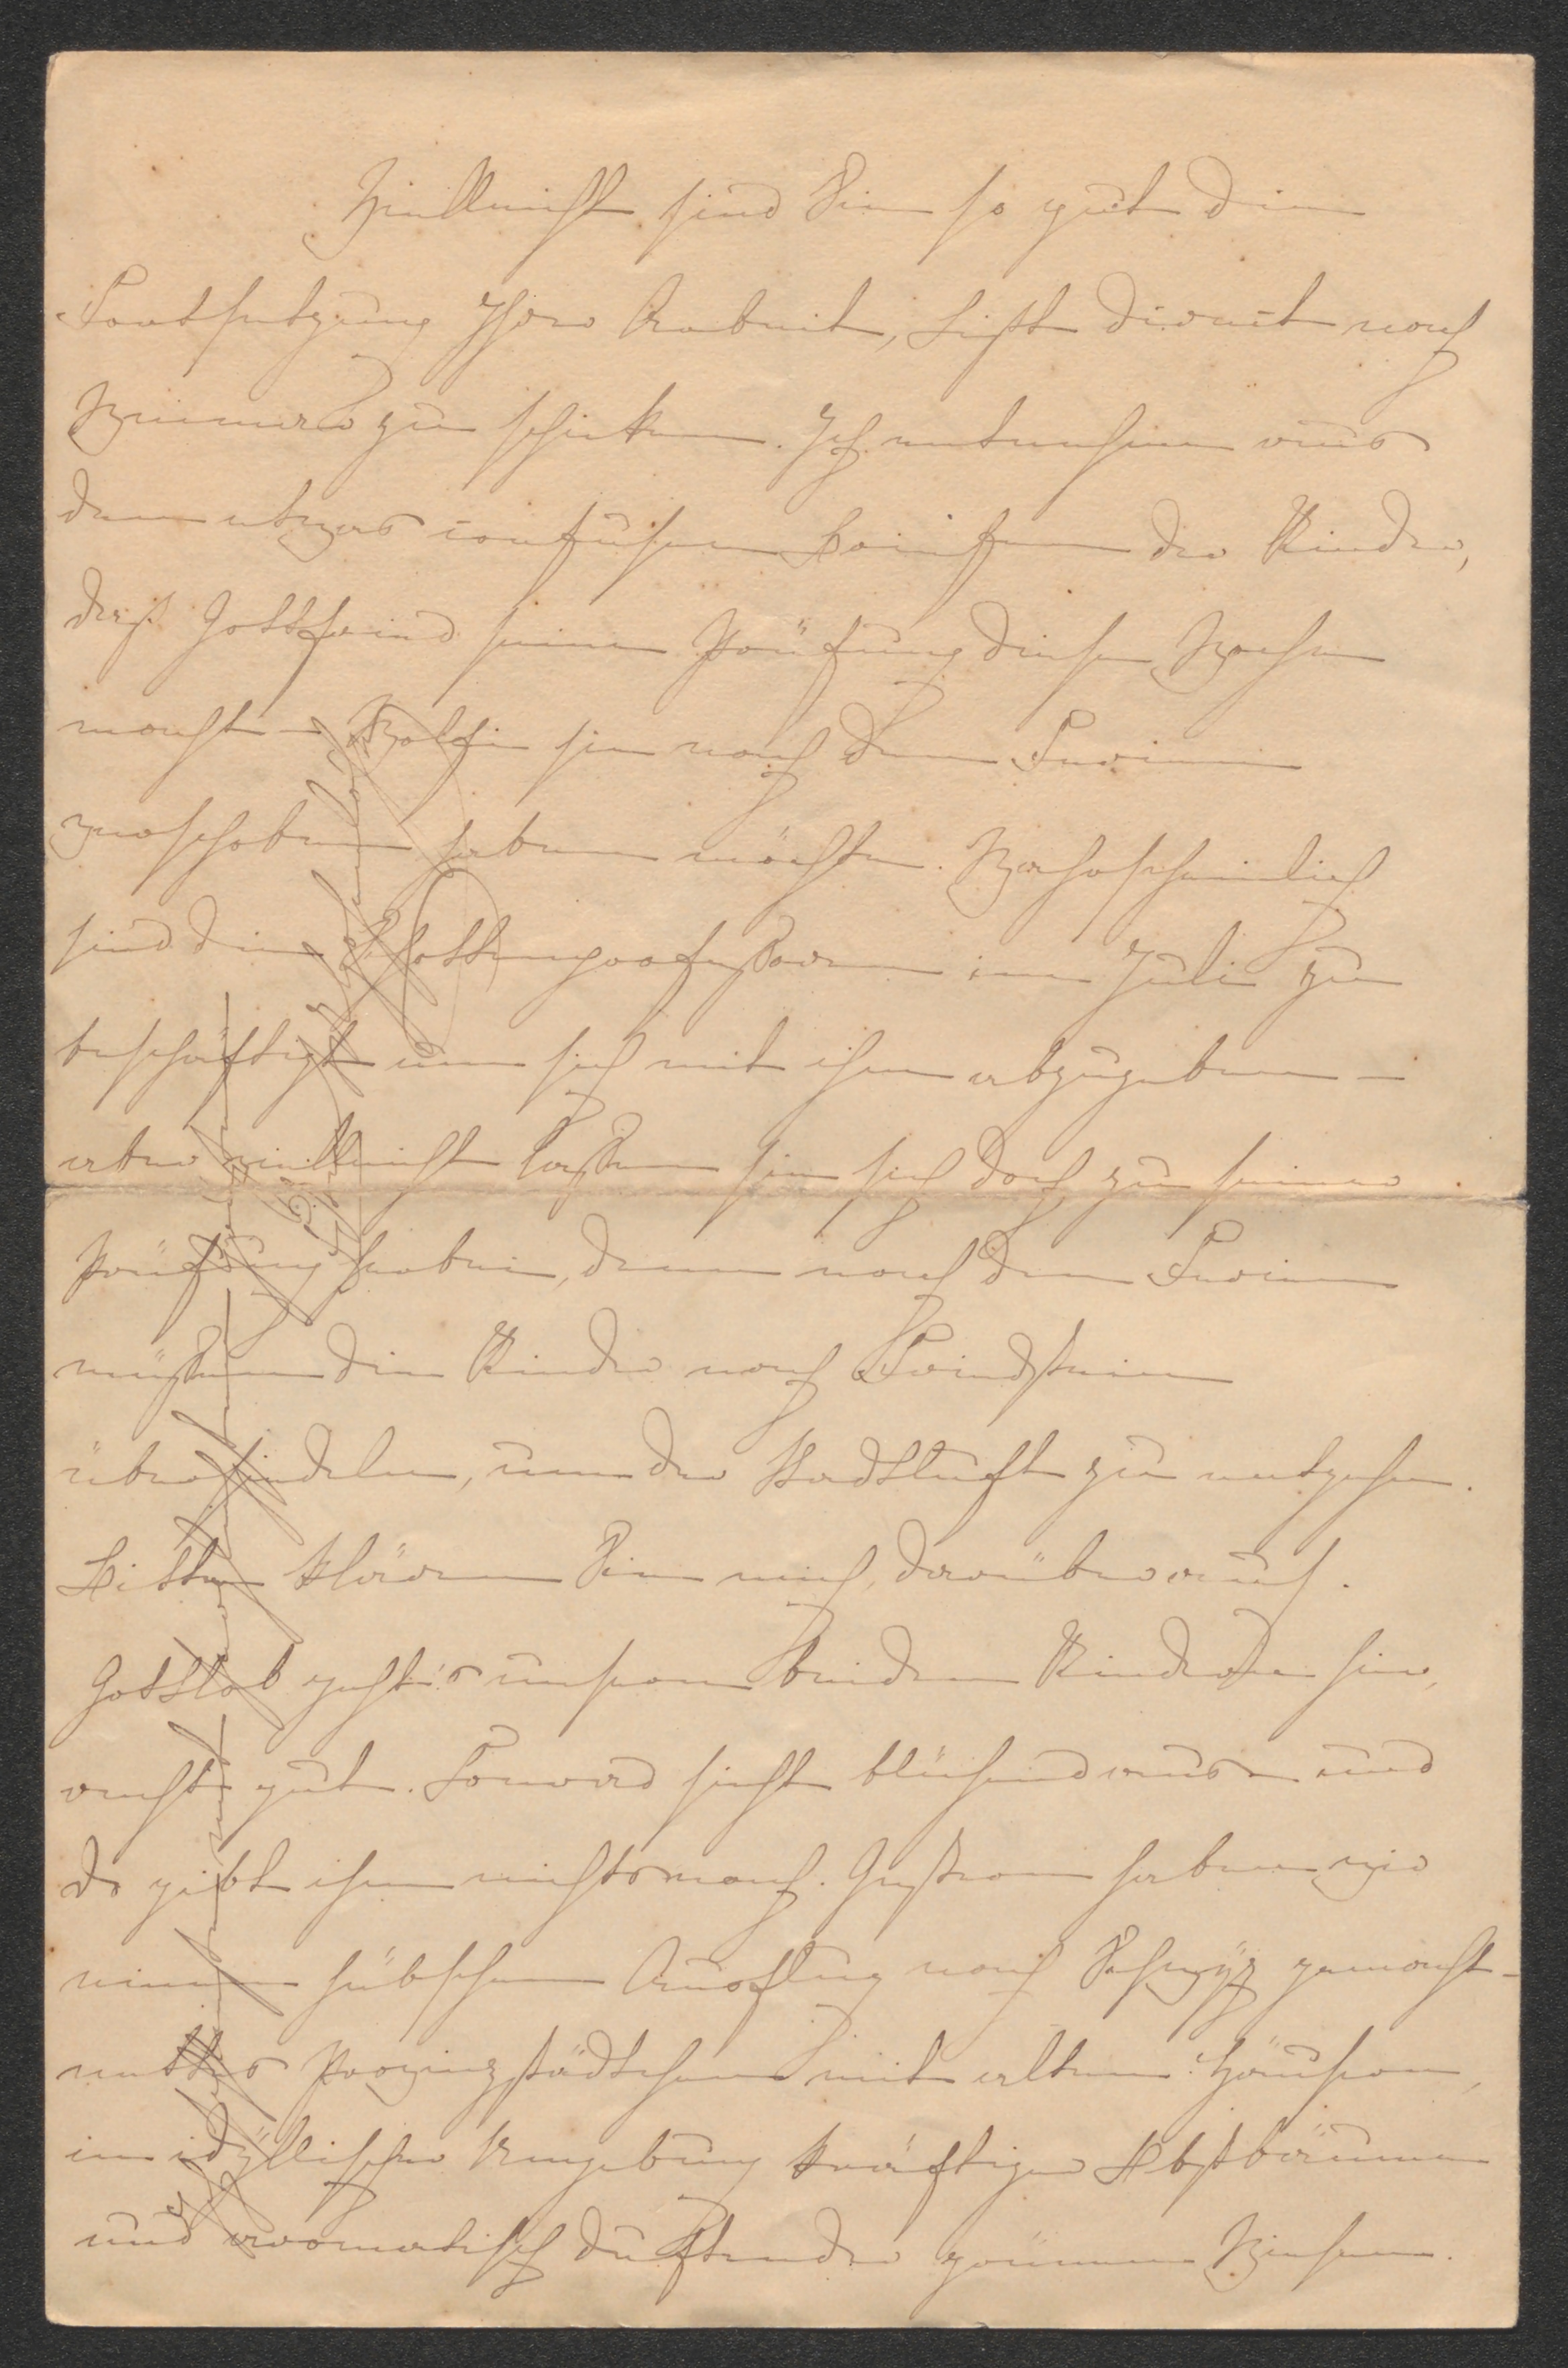 Vielleicht sind Sie so gut die
Fortsetzung Ihrer Arbeit, Liszt direct nach
Weimar zu schicken. Ich entnehme aus
dem etwas confusen Briefen der Kinder,
daß Gottfried seine Prüfung diese Woche
macht – Wolfi sie nach den Ferien
verschoben haben möchte. Wahrscheinlich
sind die Schottenprofessoren im Juli zu
beschäftigt um sich mit ihm abzugeben –
aber vielleicht laßen sie sich doch zu seiner
Prüfung herbei, denn nach den Ferien
müßen die Kinder nach
übersiedeln, um der Stadtluft zu entgehen.
Bitte klären Sie mich darüber auf.
Gottlob geht's unseren beiden Kindern hier,
recht gut. Conrad sieht blühend aus und
Du gibt ihm nichts nach. Gestern haben wir
einen hübschen Ausflug nach Schwyz gemacht –
nettes Provinzstädtchen mit alten Häusern,
in idyllischer Umgebung kräftiger Obstbäume
und aromatisch duftender grünen Wiesen.